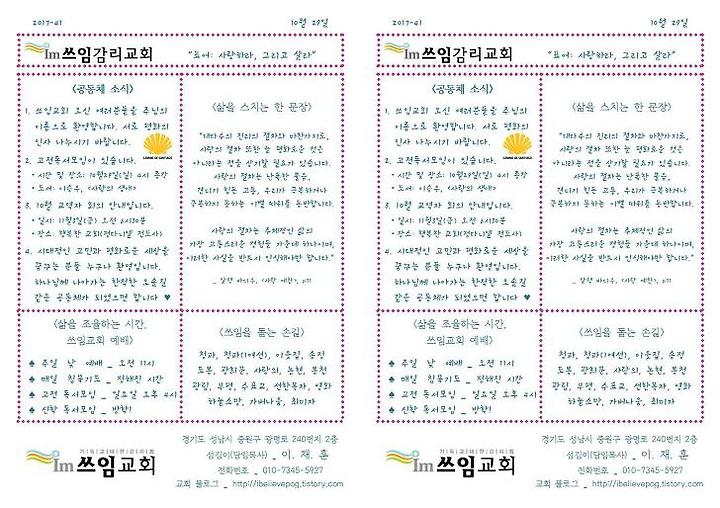 2017-41
10월 29일
Im 쓰임감리교회
"표어: 사랑하라, 그리고 살라"
<공동체 소식>
1. 쓰임교회 오신 여러분들을 주님의
이름으로 환영합니다. 서로 평화의
인사 나누시기 바랍니다.
2. 고전독서모임이 있습니다.
• 시간 및 장소: 10월29일(일) 4시
• 도서: 이승우, <사랑의 생애>
3. 10월 교역자 회의 안내입니다.
• 일시: 11월3일(금) 오전 6시30분
• 장소: 행복한 교회(정다니엘 전도사)
4. 시대적인 고민과 평화로운 세상을
꿈꾸는 분들 누구나 환영입니다.
하나님께 나아가는 한적한 오솔길
같은 공동체가 되었으면 합니다 ♥
<삶을 스치는 한 문장>
"대다수의 진리의 절차와 마찬가지로,
사랑의 절차 또한 늘 평화로운 것은
아니라는 점을 상기할 필요가 있습니다.
사랑의 절차는 난폭한 물음,
견디기 힘든 고통, 우리가 극복하거나
극복하지 못하는 이별 따위를 동반합니다.
사랑의 절차는 주체적인 삶의
가장 고통스러운 경험들 가운데 하나이며,
이러한 사실을 반드시 인식해야만 합니다."
_ 알랭 바디우, <사랑 예찬>,
<삶을 조율하는 시간,
쓰임교회 예배>
♣ 주일 낮 예배 _ 오전 11시
♣ 매일 침묵기도 _ 정해진 시간
♣ 고전 독서모임 _ 일요일 오후 4시
♣ 신학 독서모임 _ 방학!
<쓰임을 돕는 손길>
청파, 청파(여선), 이웃길, 송정
도봉, 광희문, 사랑의, 논현, 봉천
광림, 부평, 수표교, 선한목자, 영화
하늘소망, 가버나움, 희미자
기독교대한감리회
Im 쓰임교회
경기도 성남시 중원구 광명로 240번지 2층
섬김이(담임목사) _ 이 재 훈
전화번호 _ 010-7345-5927
교회 블로그 _ http://ibelievepog.tistory.com
2017-41
10월 29일
Im 쓰임감리교회
"표어: 사랑하라, 그리고 살라"
<공동체 소식>
1. 쓰임교회 오신 여러분들을 주님의
이름으로 환영합니다. 서로 평화의
인사 나누시기 바랍니다.
2. 고전독서모임이 있습니다.
• 시간 및 장소: 10월29일(일) 4시
• 도서: 이승우, <사랑의 생애>
3. 10월 교역자 회의 안내입니다.
• 일시: 11월3일(금) 오전 6시30분
• 장소: 행복한 교회(정다니엘 전도사)
4. 시대적인 고민과 평화로운 세상을
꿈꾸는 분들 누구나 환영입니다.
하나님께 나아가는 한적한 오솔길
같은 공동체가 되었으면 합니다 ♥
<삶을 스치는 한 문장>
"대다수의 진리의 절차와 마찬가지로,
사랑의 절차 또한 늘 평화로운 것은
아니라는 점을 상기할 필요가 있습니다.
사랑의 절차는 난폭한 물음,
견디기 힘든 고통, 우리가 극복하거나
극복하지 못하는 이별 따위를 동반합니다.
사랑의 절차는 주체적인 삶의
가장 고통스러운 경험들 가운데 하나이며,
이러한 사실을 반드시 인식해야만 합니다."
_ 알랭 바디우, <사랑 예찬>,
<삶을 조율하는 시간,
쓰임교회 예배>
♣ 주일 낮 예배 _ 오전 11시
♣ 매일 침묵기도 _ 정해진 시간
♣ 고전 독서모임 _ 일요일 오후 4시
♣ 신학 독서모임 _ 방학!
<쓰임을 돕는 손길>
청파, 청파(여선), 이웃길, 송정
도봉, 광희문, 사랑의, 논현, 봉천
광림, 부평, 수표교, 선한목자, 영화
하늘소망, 가버나움, 희미자
기독교대한감리회
Im 쓰임교회
경기도 성남시 중원구 광명로 240번지 2층
섬김이(담임목사) _ 이 재 훈
전화번호 _ 010-7345-5927
교회 블로그 _ http://ibelievepog.tistory.com